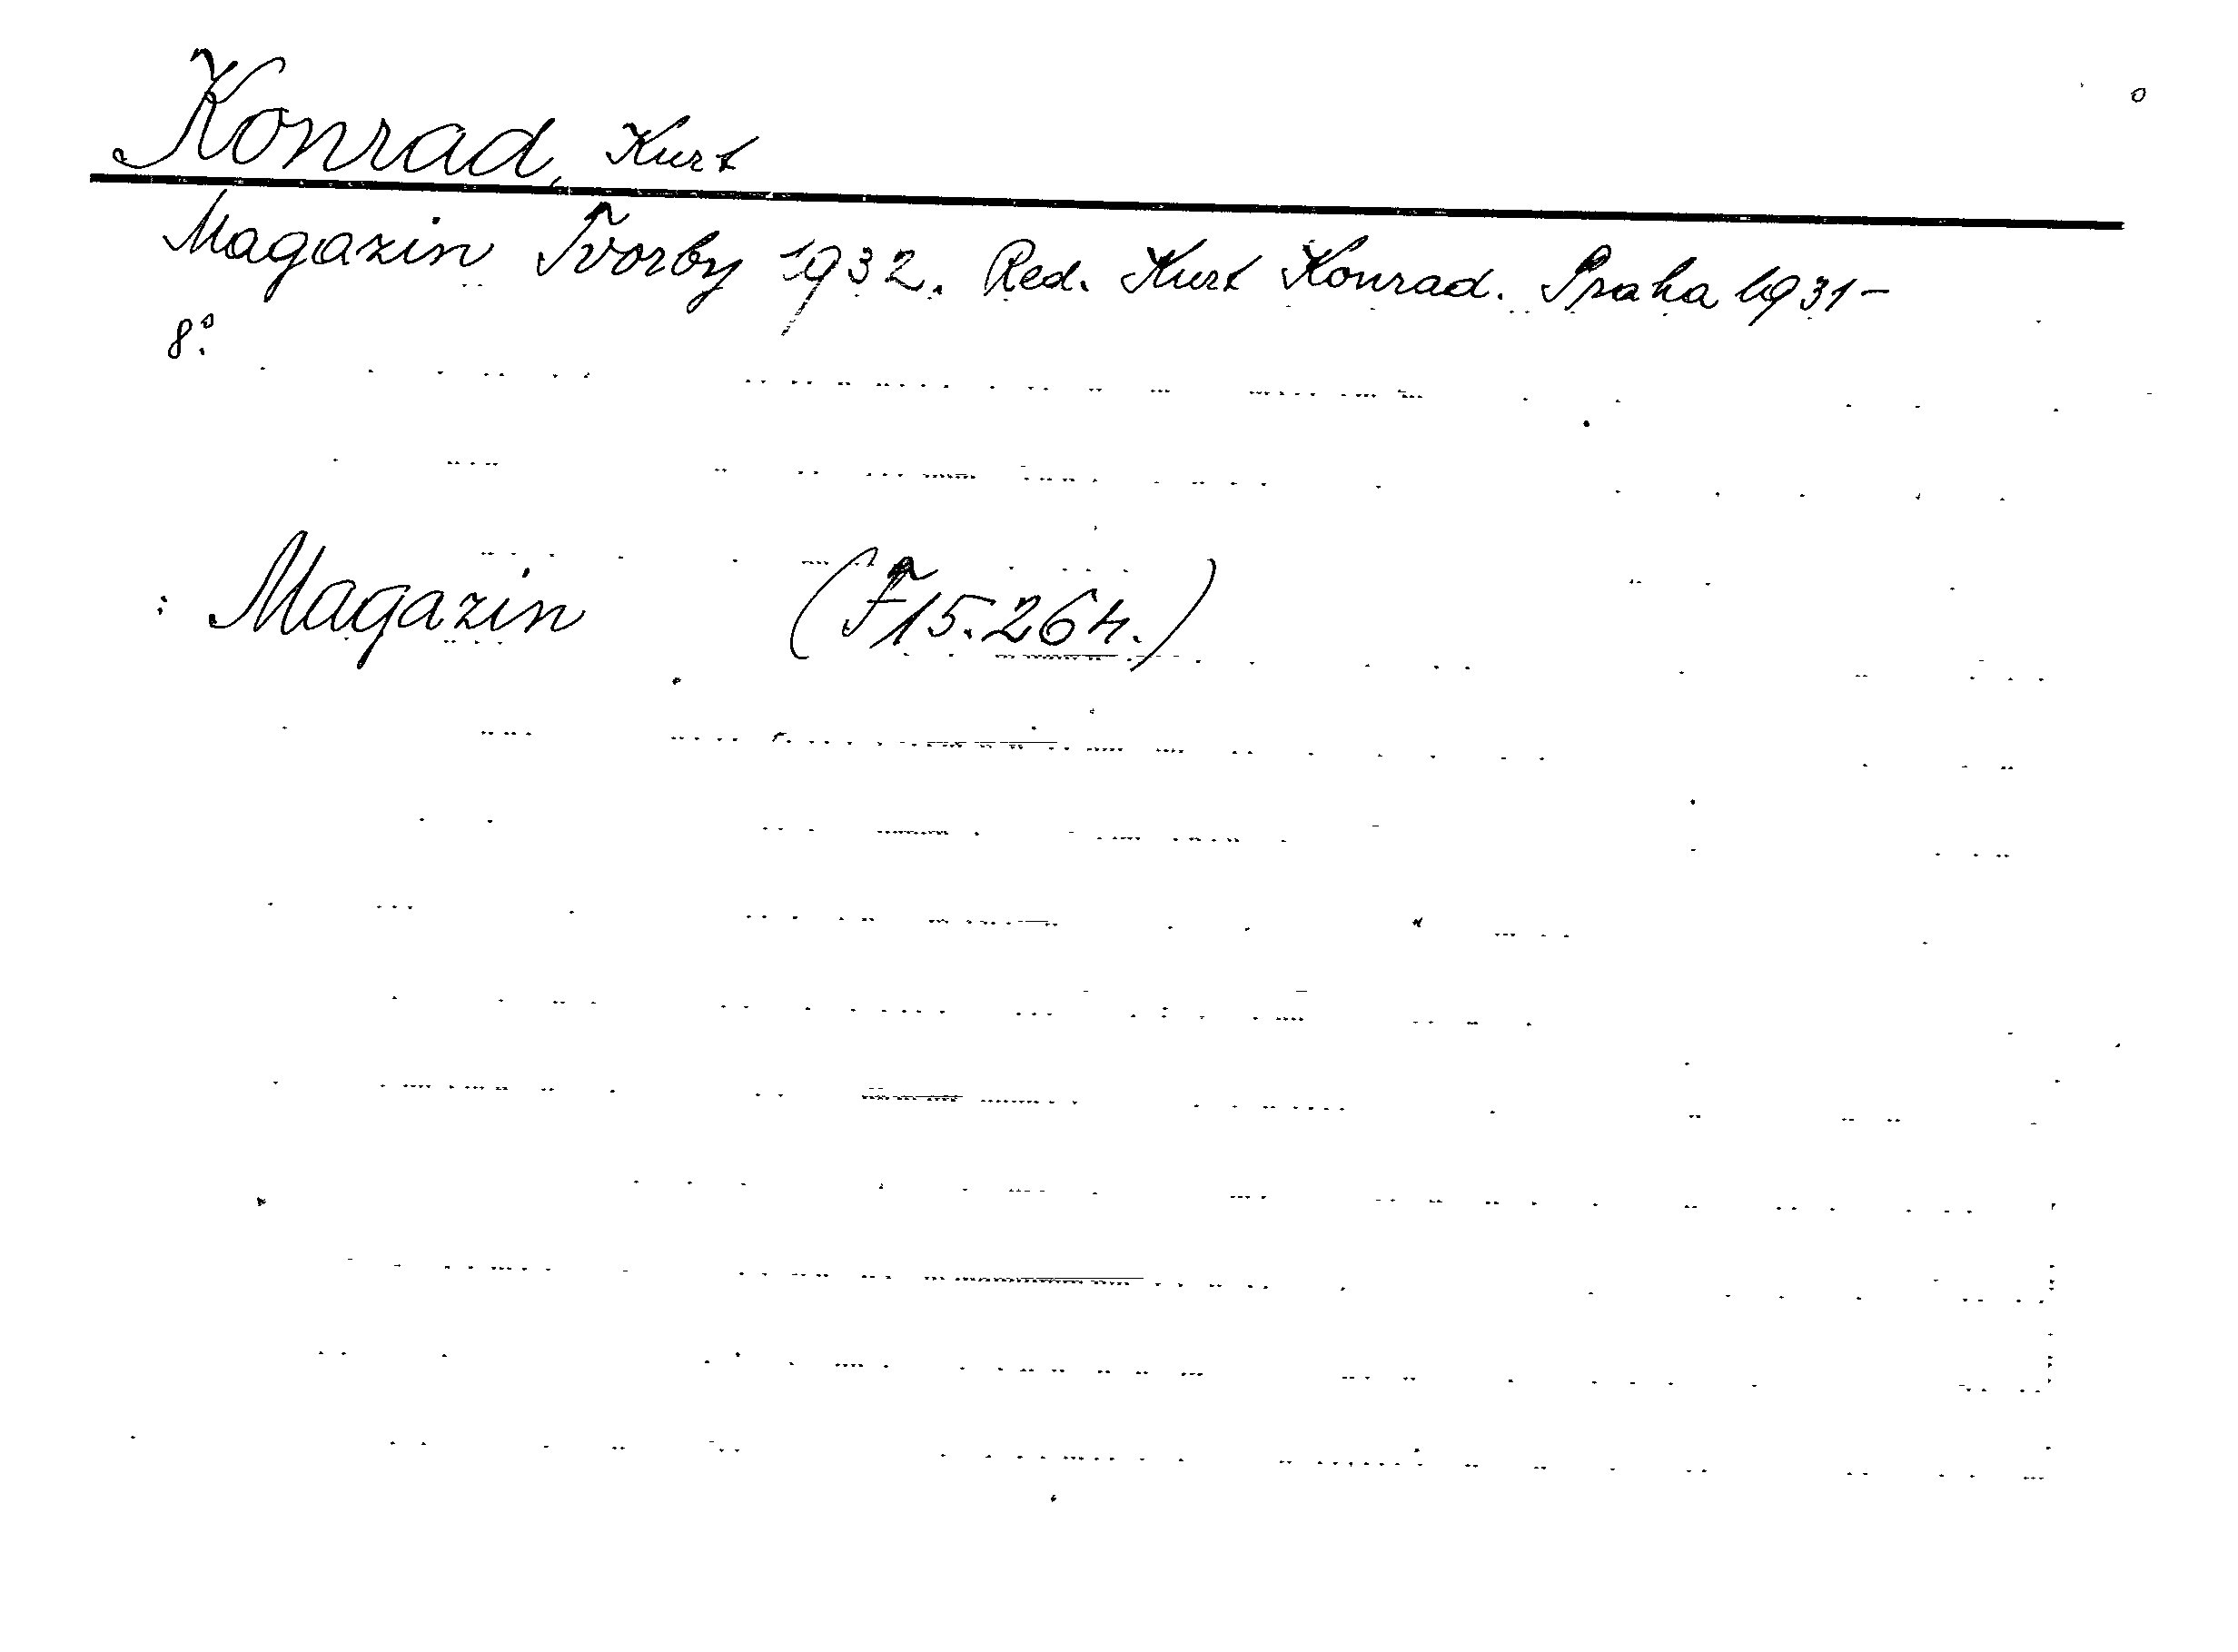 Konrad, Kurt
Magazin Tvorby 1932. Red. Kurt Konrad. Praha 1931-
8°.
: Magazin (F 15.264.)